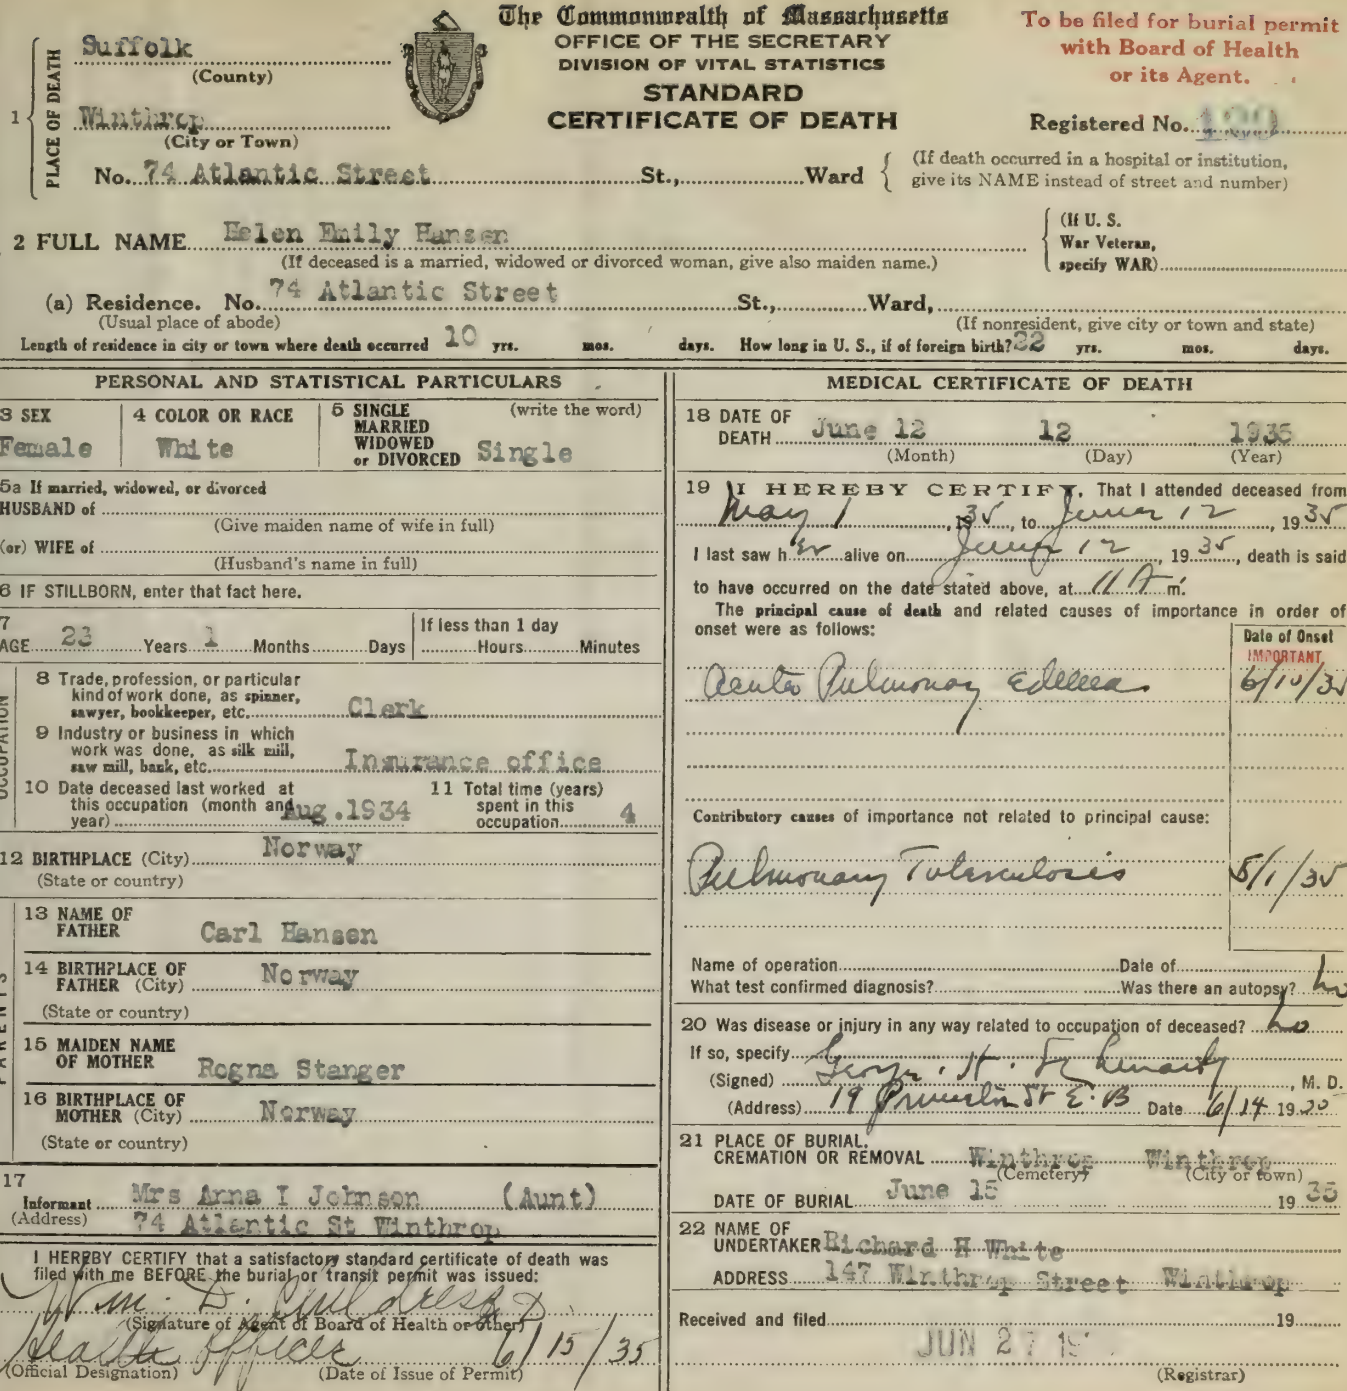 The Commonwealth of Massachusetts
OFFICE OF THE SECRETARY
DIVISION OF VITAL STATISTICS
STANDARD
CERTIFICATE OF DEATH
To be filed for burial permit
with Board of Health
or its Agent.
Registered No.
1 PLACE OF DEATH
Suffolk
(County)
Winthrop
(City or Town)
No. 74 Atlantic Street St., Ward
(If death occurred in a hospital or institution,
give its NAME instead of street and number)
2 FULL NAME Helen Emily Hansen
(If deceased is a married, widowed or divorced woman, give also maiden name.)
(If U. S.
War Veteran,
specify WAR)
(a) Residence. No. 74 Atlantic Street St., Ward,
(Usual place of abode) (If nonresident, give city or town and state)
Length of residence in city or town where death occurred 10 yrs. mos. days. How long in U. S., if of foreign birth? 22 yrs. mos. days.
PERSONAL AND STATISTICAL PARTICULARS
3 SEX
Female
4 COLOR OR RACE
White
5 SINGLE (write the word)
MARRIED
WIDOWED
or DIVORCED Single
5a If married, widowed, or divorced
HUSBAND of
(Give maiden name of wife in full)
(or) WIFE of
(Husband's name in full)
6 IF STILLBORN, enter that fact here.
7
AGE 23 Years 1 Months Days
If less than 1 day
Hours Minutes
OCCUPATION
8 Trade, profession, or particular
kind of work done, as spinner,
sawyer, bookkeeper, etc. Clerk
9 Industry or business in which
work was done, as silk mill,
saw mill, bank, etc. Insurance office
10 Date deceased last worked at
this occupation (month and
year) Aug.1934
11 Total time (years)
spent in this
occupation 4
12 BIRTHPLACE (City) Norway
(State or country)
PARENTS
13 NAME OF
FATHER Carl Hansen
14 BIRTHPLACE OF
FATHER (City) Norway
(State or country)
15 MAIDEN NAME
OF MOTHER Rogna Stanger
16 BIRTHPLACE OF
MOTHER (City) Norway
(State or country)
17
Informant Mrs Anna I Johnson (Aunt)
(Address) 74 Atlantic St Winthrop
I HEREBY CERTIFY that a satisfactory standard certificate of death was
filed with me BEFORE the burial or transit permit was issued:
Wm. D. Childress
(Signature of Agent of Board of Health or other)
Health Officer 6/15/35
(Official Designation) (Date of Issue of Permit)
MEDICAL CERTIFICATE OF DEATH
18 DATE OF
DEATH June 12 12 1935
(Month) (Day) (Year)
19 I HEREBY CERTIFY, That I attended deceased from
May 1, 1935, to June 12, 1935
I last saw her alive on June 12, 1935, death is said
to have occurred on the date stated above, at 11 A m.
The principal cause of death and related causes of importance in order of
onset were as follows:
Date of Onset
IMPORTANT
Acute Pulmonary Edema 6/10/35
Contributory causes of importance not related to principal cause:
Pulmonary Tuberculosis 5/1/35
Name of operation Date of
What test confirmed diagnosis? Was there an autopsy? no
20 Was disease or injury in any way related to occupation of deceased? no
If so, specify
(Signed) George H. M. D.
(Address) 19 Princeton St E. B Date 6/14 19
21 PLACE OF BURIAL,
CREMATION OR REMOVAL Winthrop Winthrop
(Cemetery) (City or town)
DATE OF BURIAL June 15 1935
22 NAME OF
UNDERTAKER Richard H White
ADDRESS 147 Winthrop Street Winthrop
Received and filed 19
JUN 27 19
(Registrar)